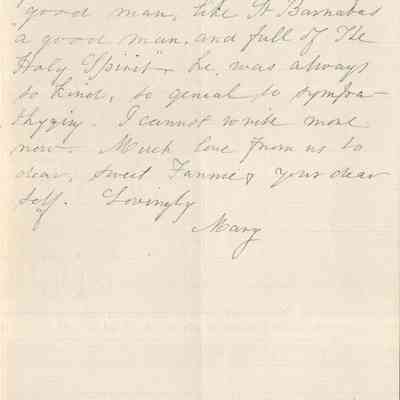 "good man, like St Barnabas
a good man, and full of The
Holy Spirit", he was always
so kind, so genial so sympa-
thyzing. I cannot write more
now. Much love from us to
dear, sweet Fannie & your dear
self. Lovingly
Mary